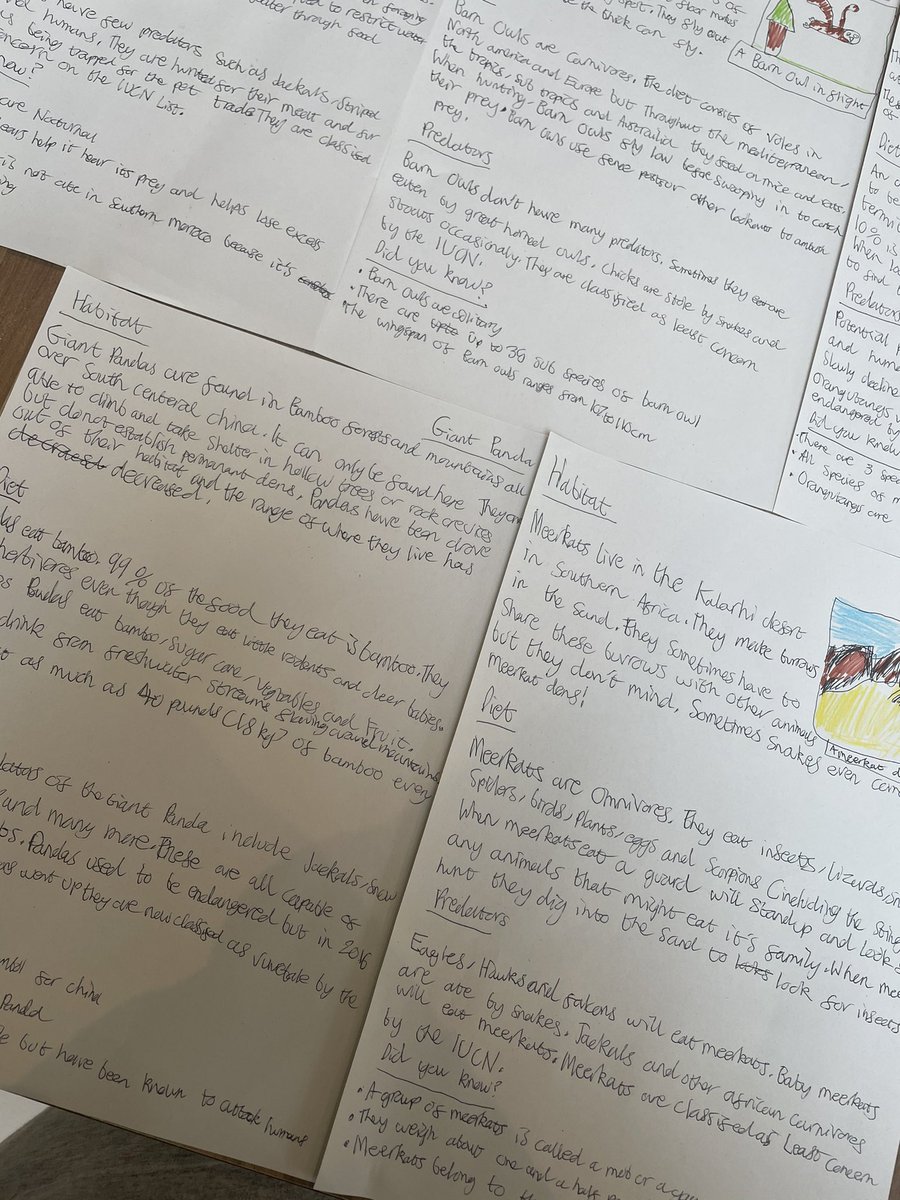 to restrict water
through food
have few predators. Such as Jackals, Striped
humans. They are hunted for their meat and fur
being trapped for the pet trade. They are classified
concern on the IUCN List.
now?
are Nocturnal
ears help it hear its prey and helps lose excess
not cute in Southern because it's
They fly out
the chick can fly.
Barn Owls are Carnivores. The diet consists of Voles in
North america and Europe but Throughout the mediterranean,
the tropics, sub tropics and Australia they feed on mice and rats.
When hunting, Barn Owls fly low before swooping in to catch
their prey. Barn owls use fence posts or other lookouts to ambush
prey.
Predators
Barn Owls don't have many predators. Sometimes they are
eaten by great horned owls. Chicks are stole by snakes and
stoats occasionally. They are classified as least concern
by the IUCN.
Did you know?
• Barn Owls are solitary
• There are up to 36 sub species of barn owl
The wingspan of Barn owls ranges from to 110cm
A Barn Owl in flight
Diet
10% is
When
to find
Predators
Potential
and hum
Slowly decline
Orangutangs
endangered by
Did you know
• There are 3 spec
• All Species of
• Orangutangs are
Giant Panda
Habitat
Giant Pandas are found in Bamboo forests and mountains all
over South centeral china. It can only be found here. They are
able to climb and take shelter in hollow trees or rock crevices
but do not establish permanant dens. Pandas have been drove
out of their habitat and the range of where they live has
decreased.
Diet
eat bamboo. 99% of the food they eat is bamboo. They
herbivores even though they eat rodents and deer babies.
Pandas eat bamboo, sugar cane, vegtables and fruit.
drink from freshwater streams flowing around mountains
as much as 40 pounds (18 kg) of bamboo every
of the Giant Panda include Jackals, Snow
and many more. These are all capable of
Pandas used to be endangered but in 2016
went up they are now classified as by the
for china
Panda
but have been known to attack humans
Habitat
Meerkats live in the Kalarhi desert
in Southern Africa. They make burrows
in the sand. They Sometimes have to
Share these burrows with other animals
but they don't mind, Sometimes Snakes even
meerkat dens!
Diet
Meerkats are Omnivores. They eat insects, lizards,
Spiders, birds, plants, eggs and Scorpions (including the
When meerkats eat a guard will Stand up and look
any animals that might eat it's family. When
hunt they dig into the Sand to look for insects
Predators
Eagles, Hawks and falcons will eat meerkats. Baby meerkats
are ate by snakes. Jackals and other african carnivores
will eat meerkats. Meerkats are classified as Least Concern
by the IUCN.
Did you know?
• A group of meerkats is called a mob or a
• They weigh about one and a half
• Meerkats belong to the
A meerkat